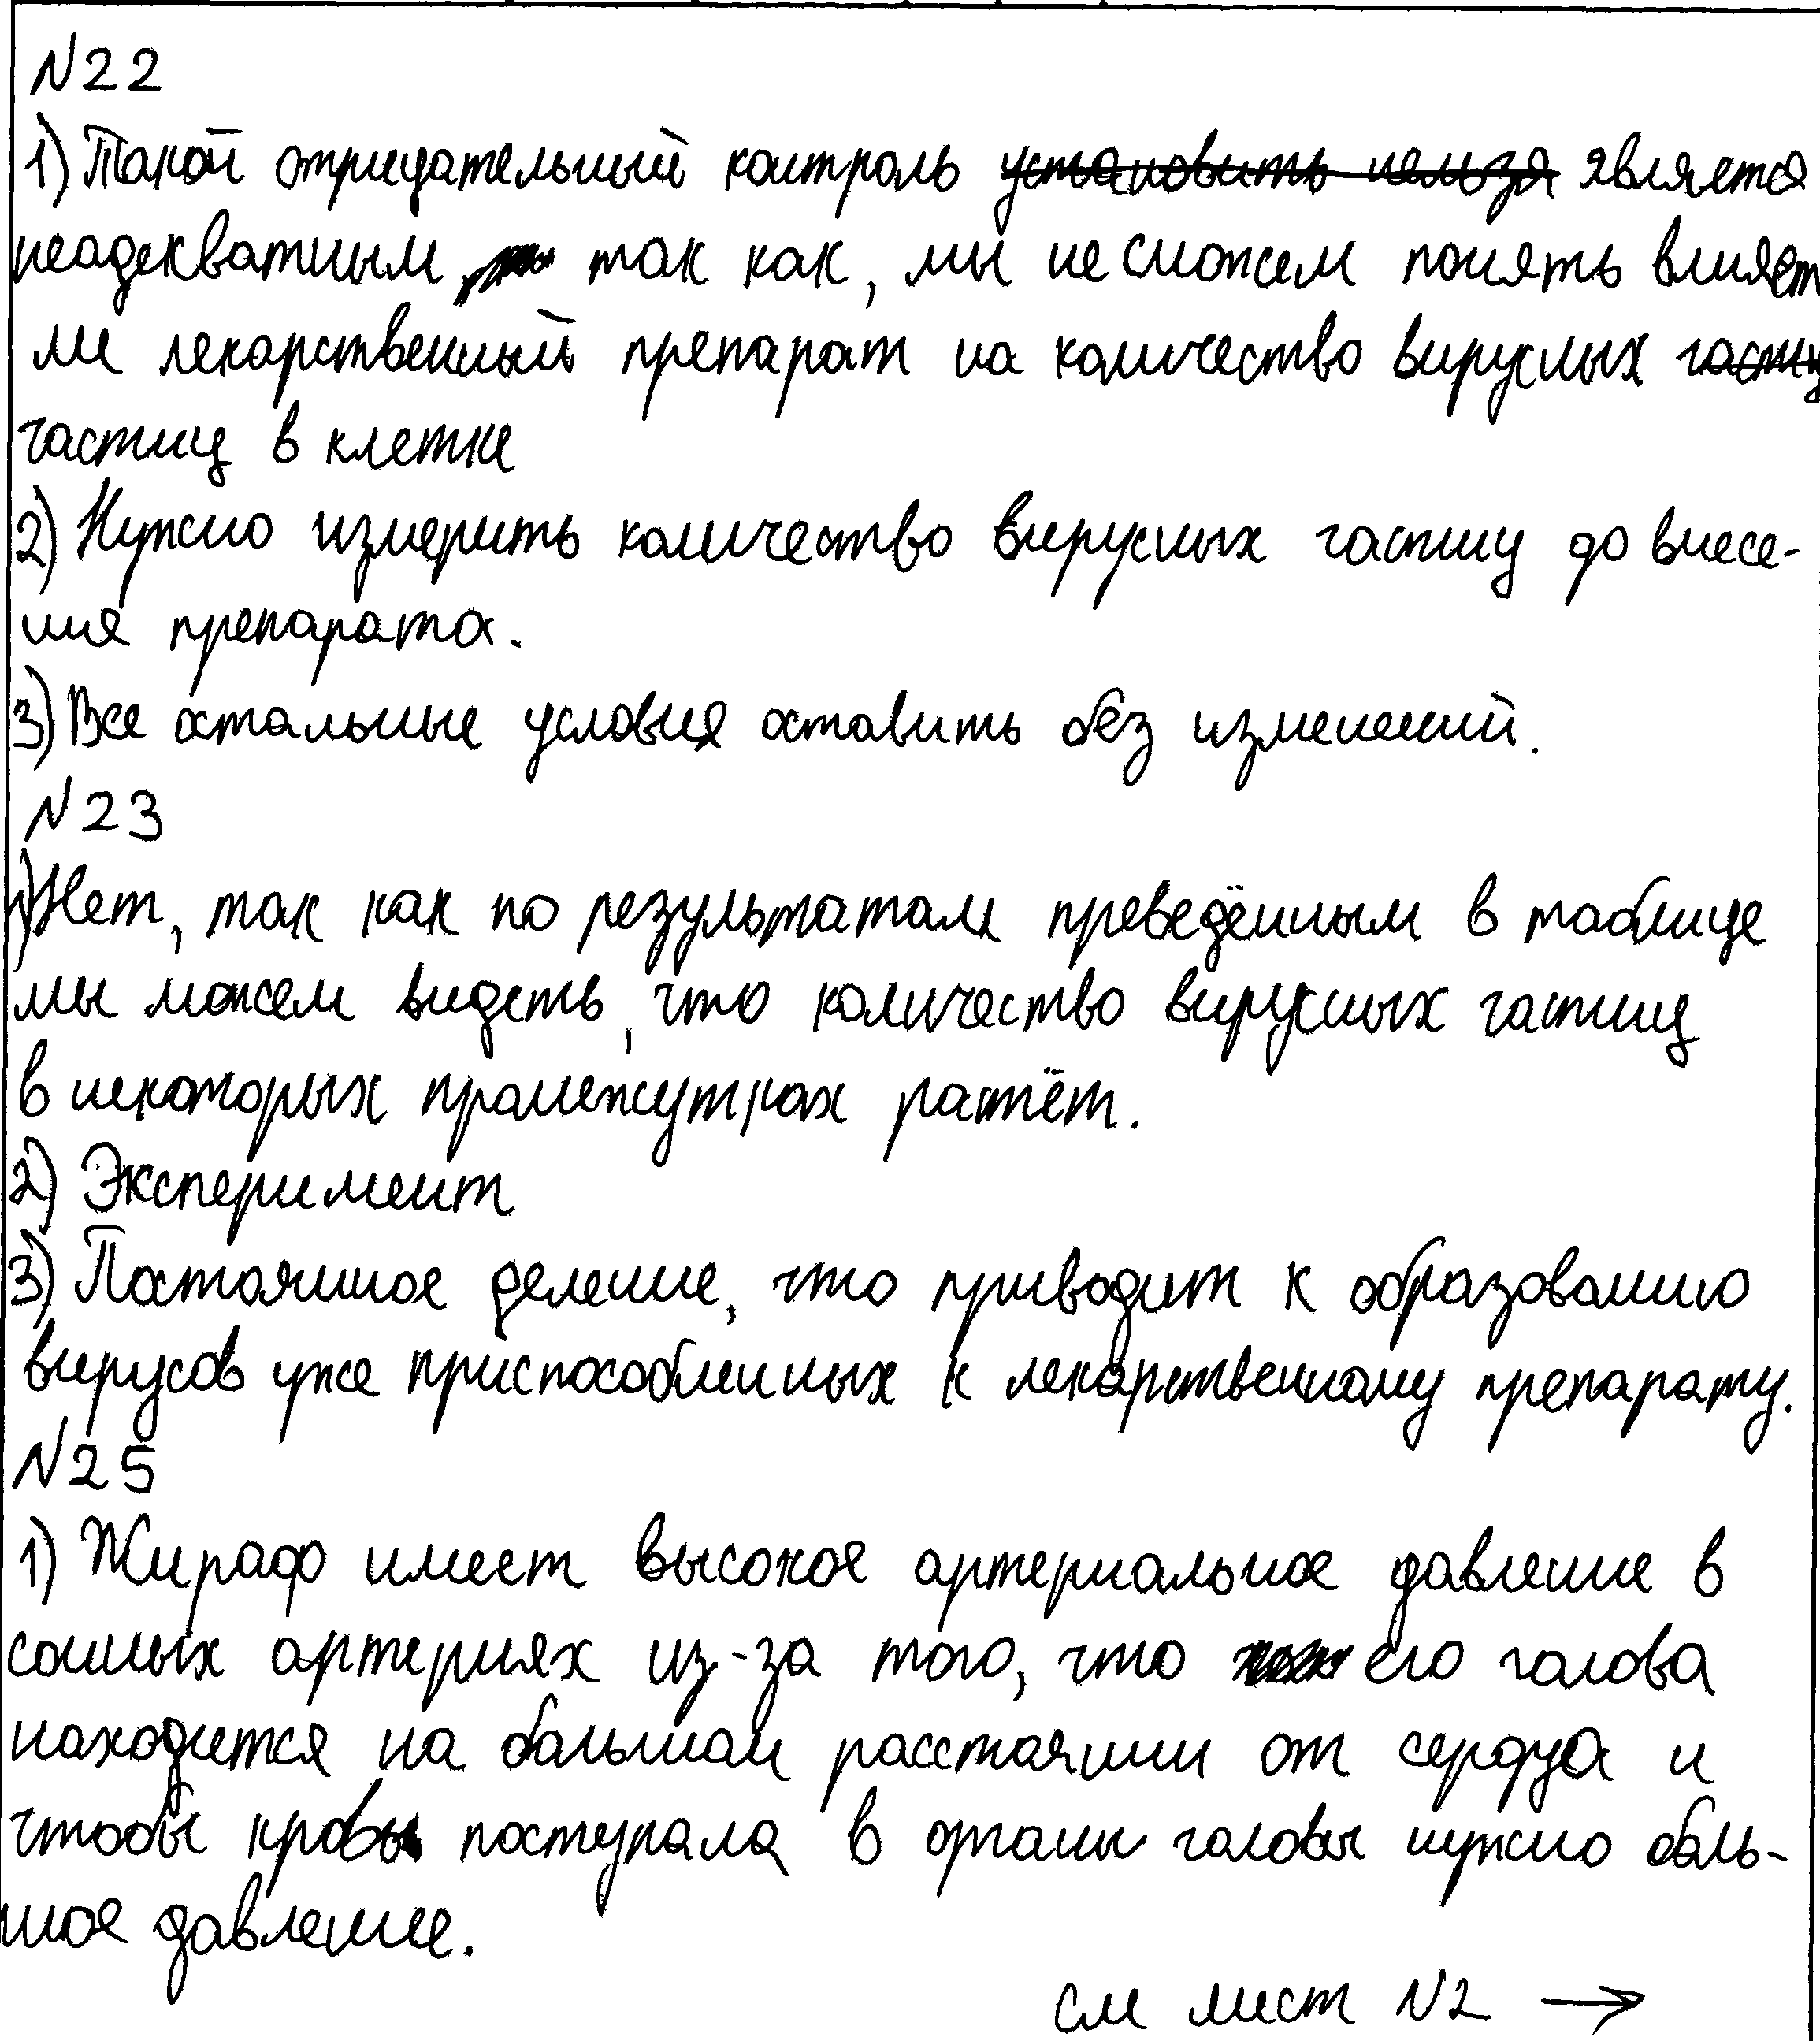 N22
1) Такой отрицательный контроль установить нельзя является
неадекватным так как, мы не сможем понять влияет
ли лекарственный препарат на количество вирусных частиц
частиц в клетке
2) Нужно измерить количество вирусных частиц до внесе-
ния препарата.
3) Все остальные условия оставить без изменений.
N23
1) Нет, так как по результатам преведённым в таблице
мы можем видеть, что количество вирусных частиц
в некоторых промежутках растёт.
2) Эксперимент
3) Постоянное деление, что приводит к образованию
вирусов уже приспособленных к лекарственному препарату.
N25
1) Жираф имеет высокое артериальное давление в
сонных артериях из-за того, что его голова
находится на большом расстоянии от сердца и
чтобы кровь поступала в органы головы нужно боль-
шое давление.
см лист N2 →